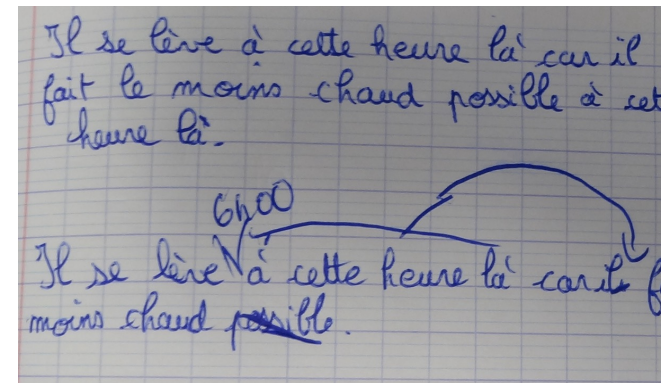 Il se lève à cette heure là car il
fait le moins chaud possible à cet
heure là.
6h00
Il se lève à cette heure là car il f
moins chaud possible.